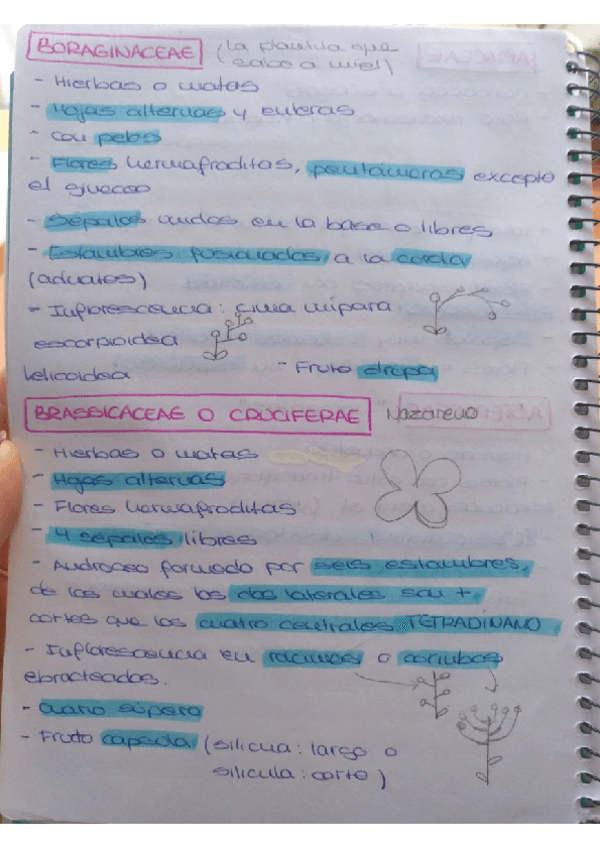 BORAGINACEAE (la plantita que
sabe a miel)
- Hierbas o matas
- Hojas alternas y enteras
- Con pelos
- Flores hermafroditas, pentámeras excepto
el gineceo
- Sépalos unidos en la base o libres
- Estambres fusionados a la corola
(adnatos)
- Inflorescencia: cima unípara
escorpioidea
helicoidea
- Fruto drupa
BRASSICACEAE O CRUCIFERAE Nazareno
- Hierbas o matas
- Hojas alternas
- Flores hermafroditas
- 4 sépalos libres
- Androceo formado por seis estambres,
de los cuales los dos laterales son +
cortos que los cuatro centrales TETRADÍNAMO
- Inflorescencia en racimos o corimbos
ebracteados.
- Ovario súpero
- Fruto capsula (silicua: largo o
silicula: corto)